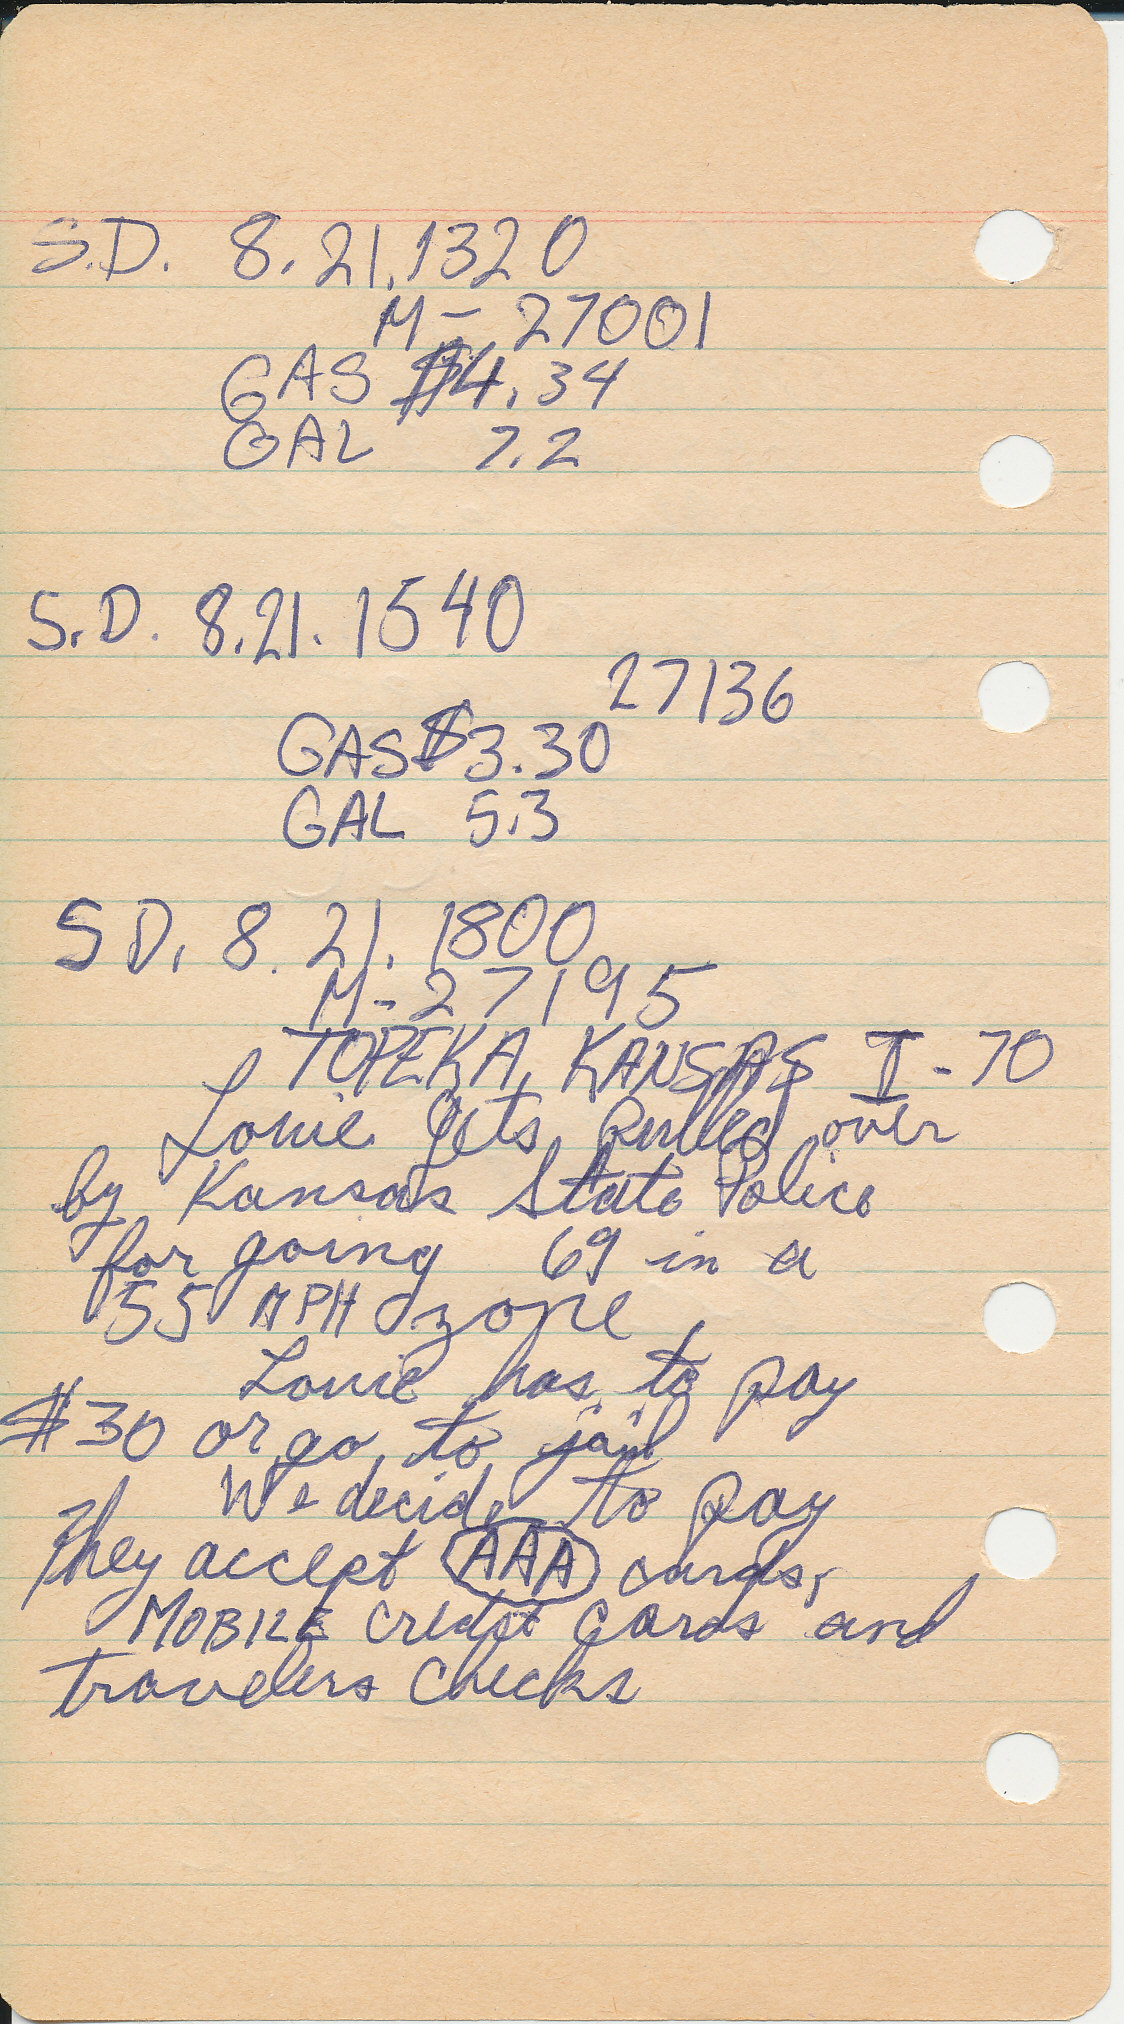 S.D. 8.21.1320
M- 27001
GAS $4.34
GAL 7.2
S.D. 8.21. 1540
27136
GAS $3.30
GAL 5.3
SD. 8.21. 1800
M-27195
TOPEKA, KANSAS I-70
Louie gets pulled over
by Kansas State Police
for going 69 in a
55 MPH zone
Louie has to pay
$30 or go to jail
We decide to pay
They accept AAA cards,
MOBILE credit cards and
travelers checks